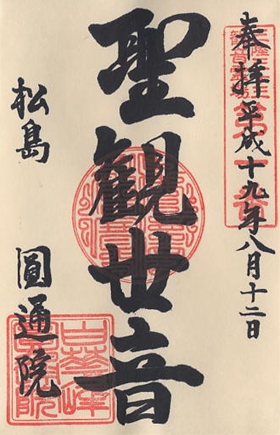 奉拝 平成十九年八月十二日
聖観世音
松島 圓通院